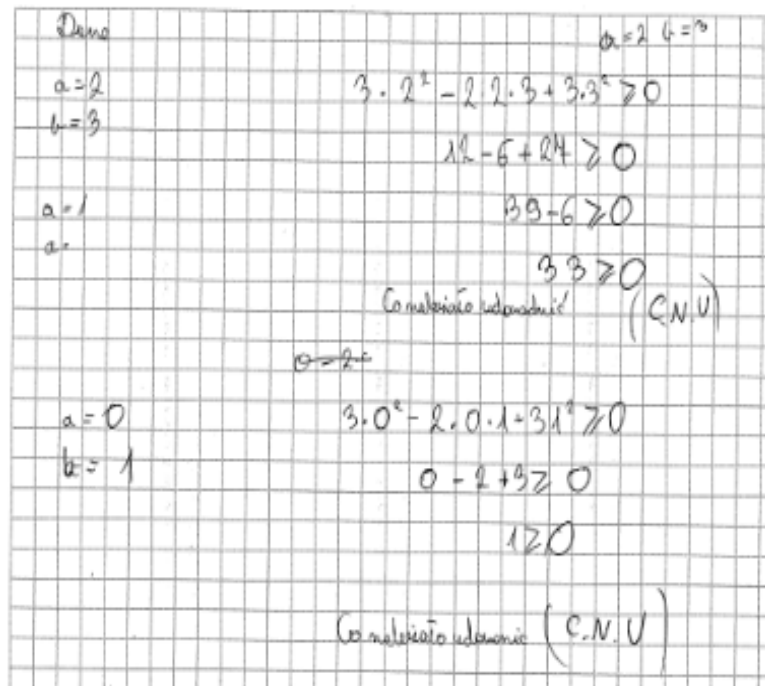 Dane
a=2 b=3
a=2
3·2² - 2·2·3 + 3·3² ⩾ 0
b=3
12-6+27 ⩾ 0
a=1
39-6 ⩾ 0
a=
33 ⩾ 0
Co należało udowodnić (C.N.U)
a = 0
3·0² - 2·0·1+3·1² ⩾ 0
b = 1
0 - 2 +3 ⩾ 0
1 ⩾ 0
Co należało udowonić (C.N.U)